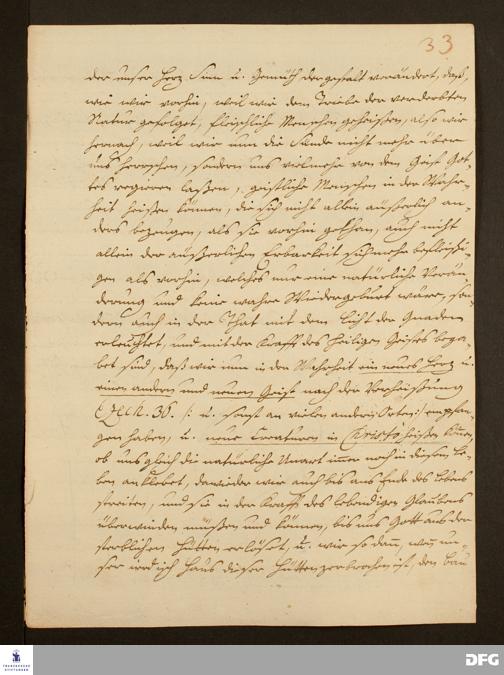 33
der unser Hertz Sinn u. Gemüth dergestalt verändert, daß,
wie wir vorhin, weil wir dem Triebe der verderbten
Natur gefolget, fleischliche Menschen geheissen, also wir
hernach, weil wir nun die Sünde nicht mehr über
uns herrschen, sondern uns vielmehr von dem Geist Got-
tes regieren laßen, geistliche Menschen in der Wahr-
heit heißen können, die sich nicht allein äußerlich an-
ders bezeugen, als sie vorhin gethan, auch nicht
allein der äußerlichen Erbarkeit sich mehr befleißi-
gen als vorhin, welches nur eine natürliche Verän-
derung und keine wahre Wiedergeburt wäre, son-
dern auch in der That mit dem Licht der Gnaden
erleuchtet, und mit der Krafft des heiligen Geistes bega-
bet sind, daß wir nun in der Wahrheit ein neues Hertz u.
einen andern und neuen Geist nach der Verheissung
Ezech. 36. /: u. sonst an vielen andern Orten :/ empfan-
gen haben, u. neue Creaturen in Christo heißen können,
ob uns gleich die natürliche Unart immer noch in diesem Le-
ben anklebet, dawider wir auch bis ans Ende des Lebens
streiten, und sie in der Krafft des lebendigen Glaubens
überwinden müßen und können, bis uns Gott aus der
sterblichen Hütten erlöset, u. wir so dann, wenn un-
ser irdisch Haus dieser Hütten zerbrochen ist, den Bau
FRANCKESCHE
STIFTUNGEN
DFG